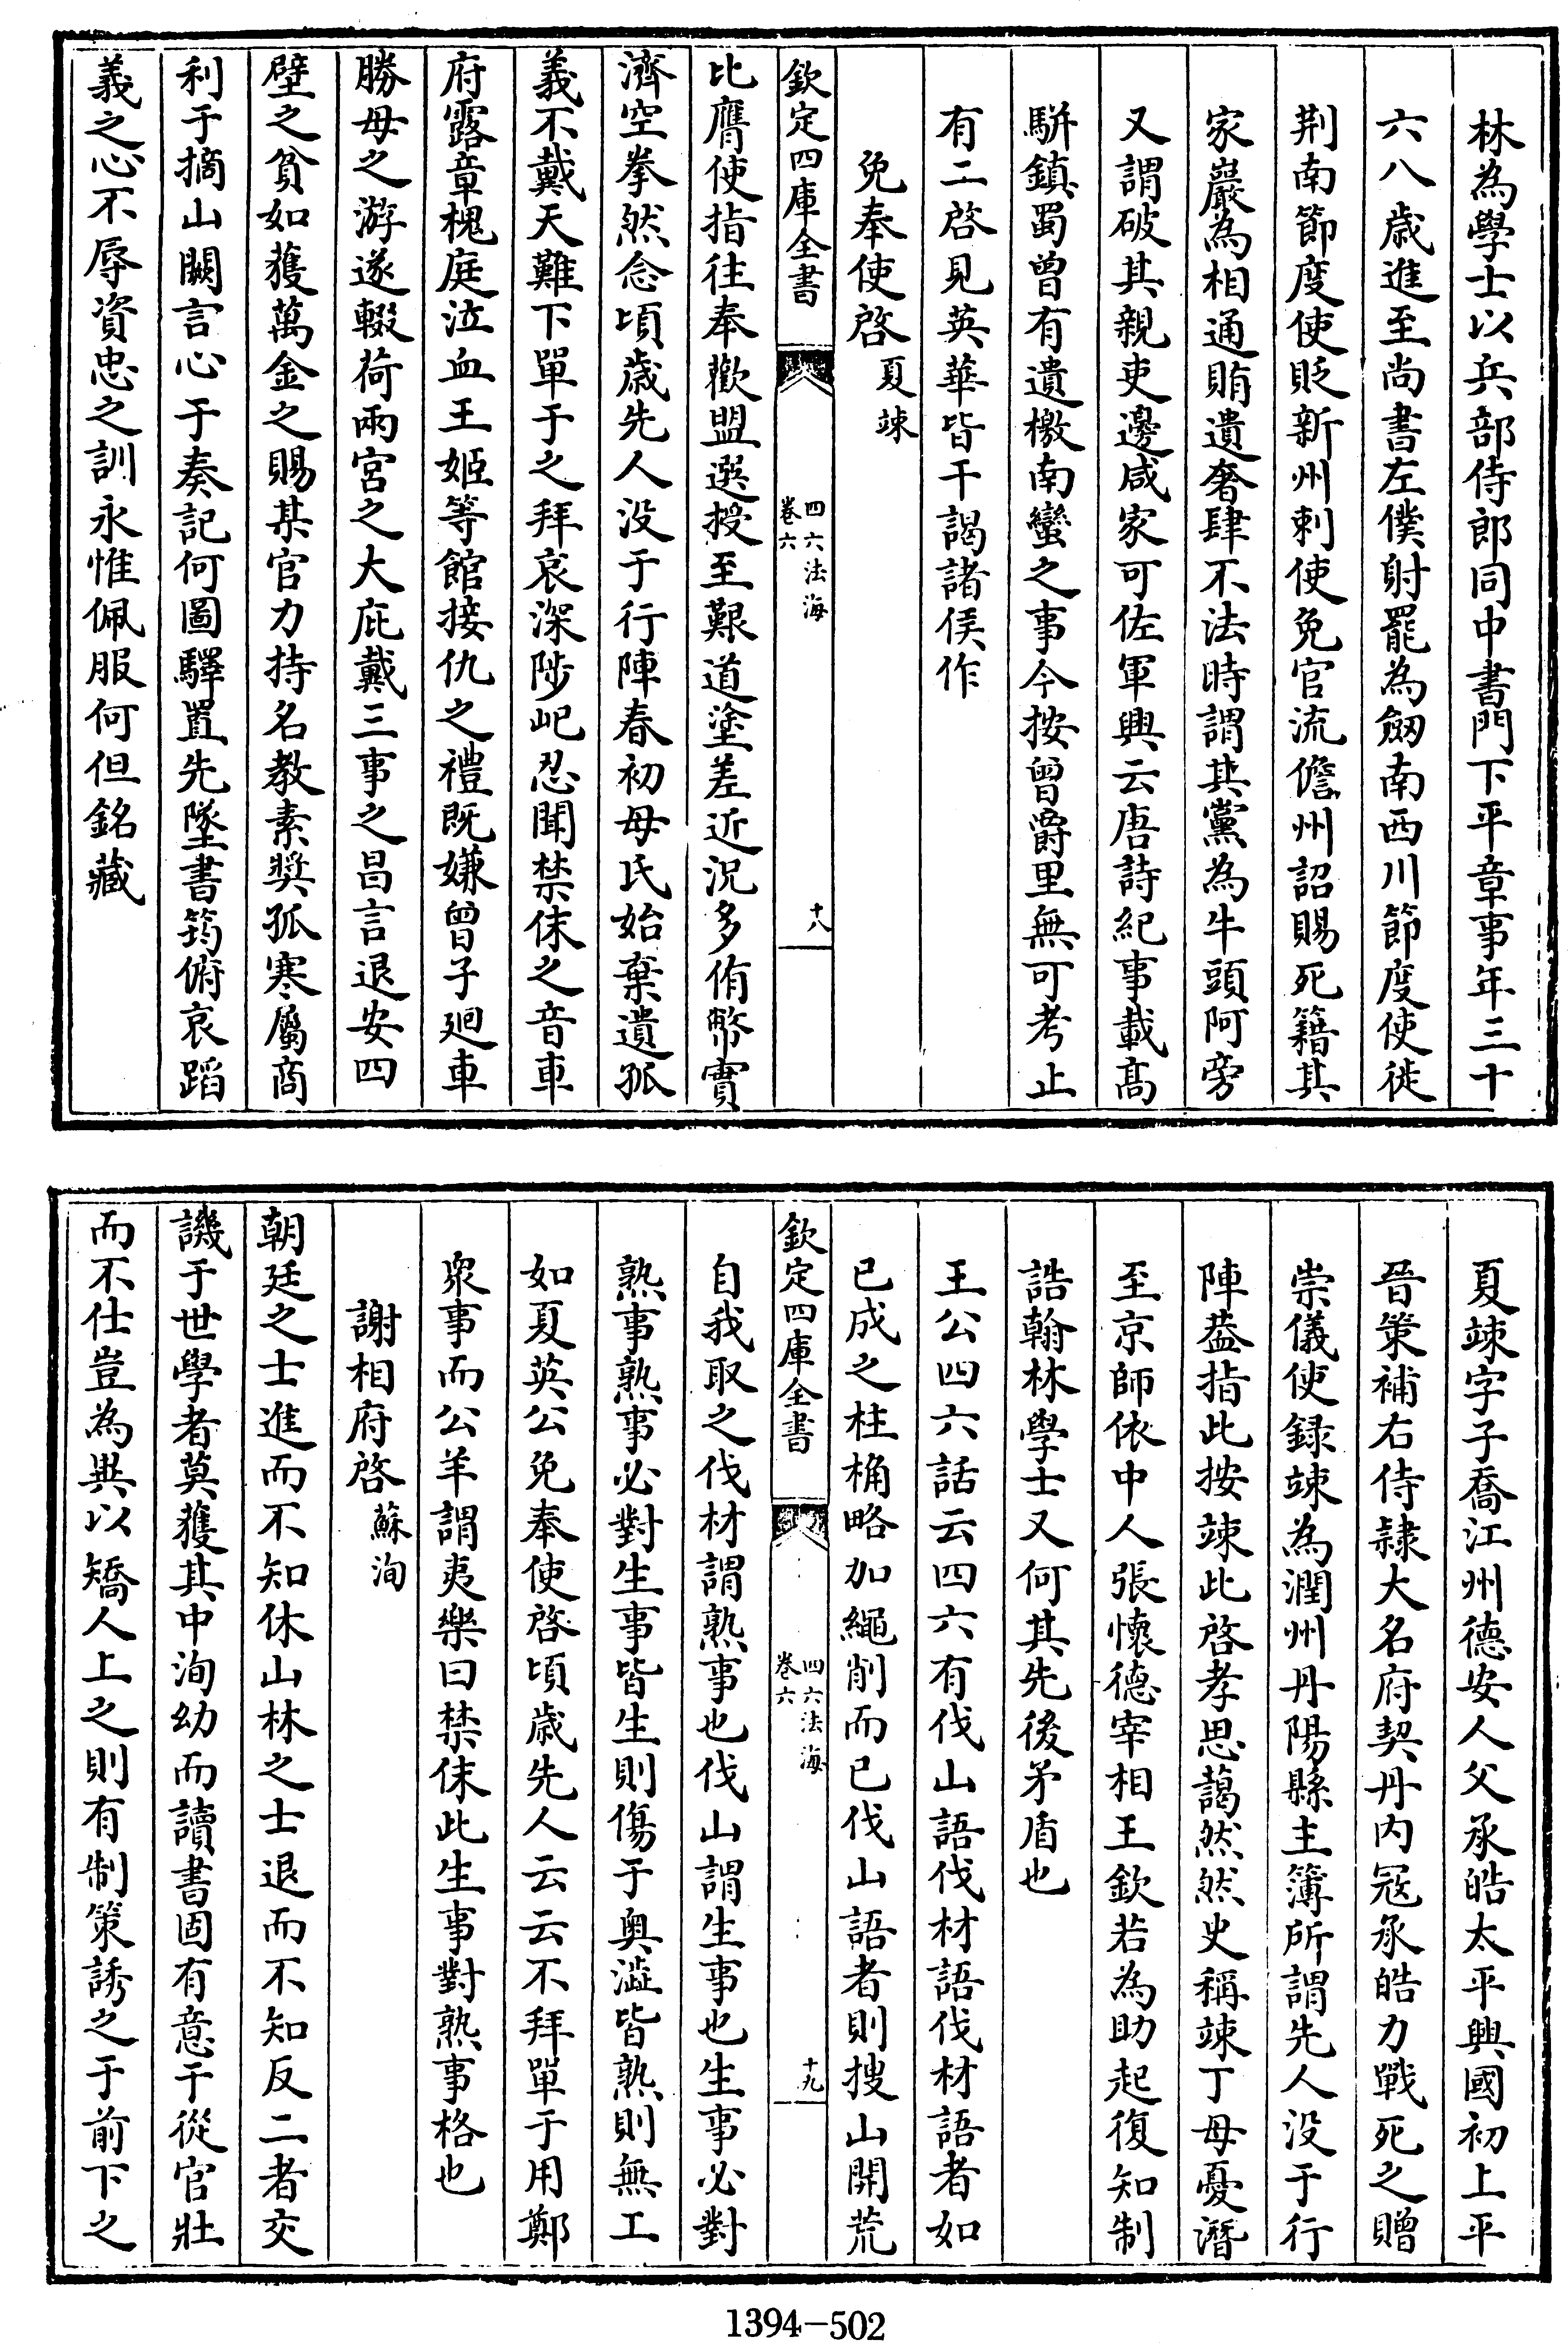 林為學士以兵部侍郎同中書門下平章事年三十
六八歲進至尚書左僕射罷為劒南西川節度使徙
荆南節度使貶新州刺使免官流儋州詔賜死籍其
家巖為相通賄遺奢肆不法時謂其黨為牛頭阿旁
又謂破其親吏邊咸家可佐軍興云唐詩紀事載髙
駢鎮蜀曾有遺檄南蠻之事今按曾爵里無可考止
有二啓見英華皆干謁諸侯作
免奉使啓 夏竦
欽定四庫全書 四六法海 卷六 十八
比膺使指往奉歡盟選授至艱道塗差近況多侑幣實
濟空拳然念頃歲先人没于行陣春初母氏始棄遺孤
義不戴天難下單于之拜哀深陟屺忍聞禁侏之音車
府露章槐庭泣血王姬等館接仇之禮既嫌曾子廻車
勝母之游遂輟荷兩宮之大庇戴三事之昌言退安四
壁之貧如獲萬金之賜某官力持名教素奬孤寒屬商
利于摘山闕言心于奏記何圖驛置先墜書筠俯哀蹈
義之心不辱資忠之訓永惟佩服何但銘藏
夏竦字子喬江州德安人父承皓太平興國初上平
晉策補右侍隷大名府契丹内冦承皓力戰死之贈
崇儀使録竦為潤州丹陽縣主簿所謂先人没于行
陣葢指此按竦此啓孝思藹然然史稱竦丁母憂潛
至京師依中人張懷德宰相王欽若為助起復知制
誥翰林學士又何其先後矛盾也
王公四六話云四六有伐山語伐材語伐材語者如
已成之柱桷略加繩削而已伐山語者則搜山開荒
欽定四庫全書 四六法海 卷六 十九
自我取之伐材謂熟事也伐山謂生事也生事必對
熟事熟事必對生事皆生則傷于奥澁皆熟則無工
如夏英公免奉使啓頃歲先人云云不拜單于用鄭
衆事而公羊謂夷樂曰禁侏此生事對熟事格也
謝相府啓 蘇洵
朝廷之士進而不知休山林之士退而不知反二者交
譏于世學者莫獲其中洵幼而讀書固有意于從官壯
而不仕豈為異以矯人上之則有制策誘之于前下之
1394-502